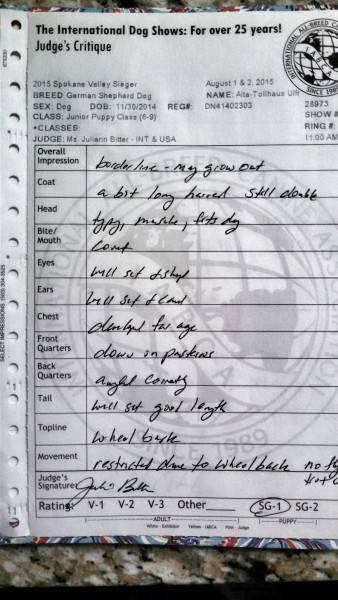 The International Dog Shows: For over 25 years!
Judge's Critique
2015 Spokane Valley Sieger August 1 & 2, 2015
BREED German Shepherd Dog NAME: Alta-Tollhaus Ulf
SEX: Dog DOB: 11/30/2014 REG#: DN41402303 28973
CLASS: Junior Puppy Class (6-9) SHOW #
*CLASSES: RING #:
JUDGE: Ms. Juliann Bitter - INT & USA 11:00 AM
Overall Impression borderline - may grow out
Coat a bit long haired still double
Head typy, muscle, fits dog
Bite/Mouth correct
Eyes well set & shap
Ears well set &
Chest developed for age
Front Quarters down in pasterns
Back Quarters angled correctly
Tail well set good length
Topline wheel back
Movement restricted due to wheel back no
Judge's Signature
Rating: V-1 V-2 V-3 Other SG-1 SG-2
ADULT PUPPY
White - Exhibitor Yellow - IABCA Pink - Judge
SELECT IMPRESSIONS
SINCE 1989